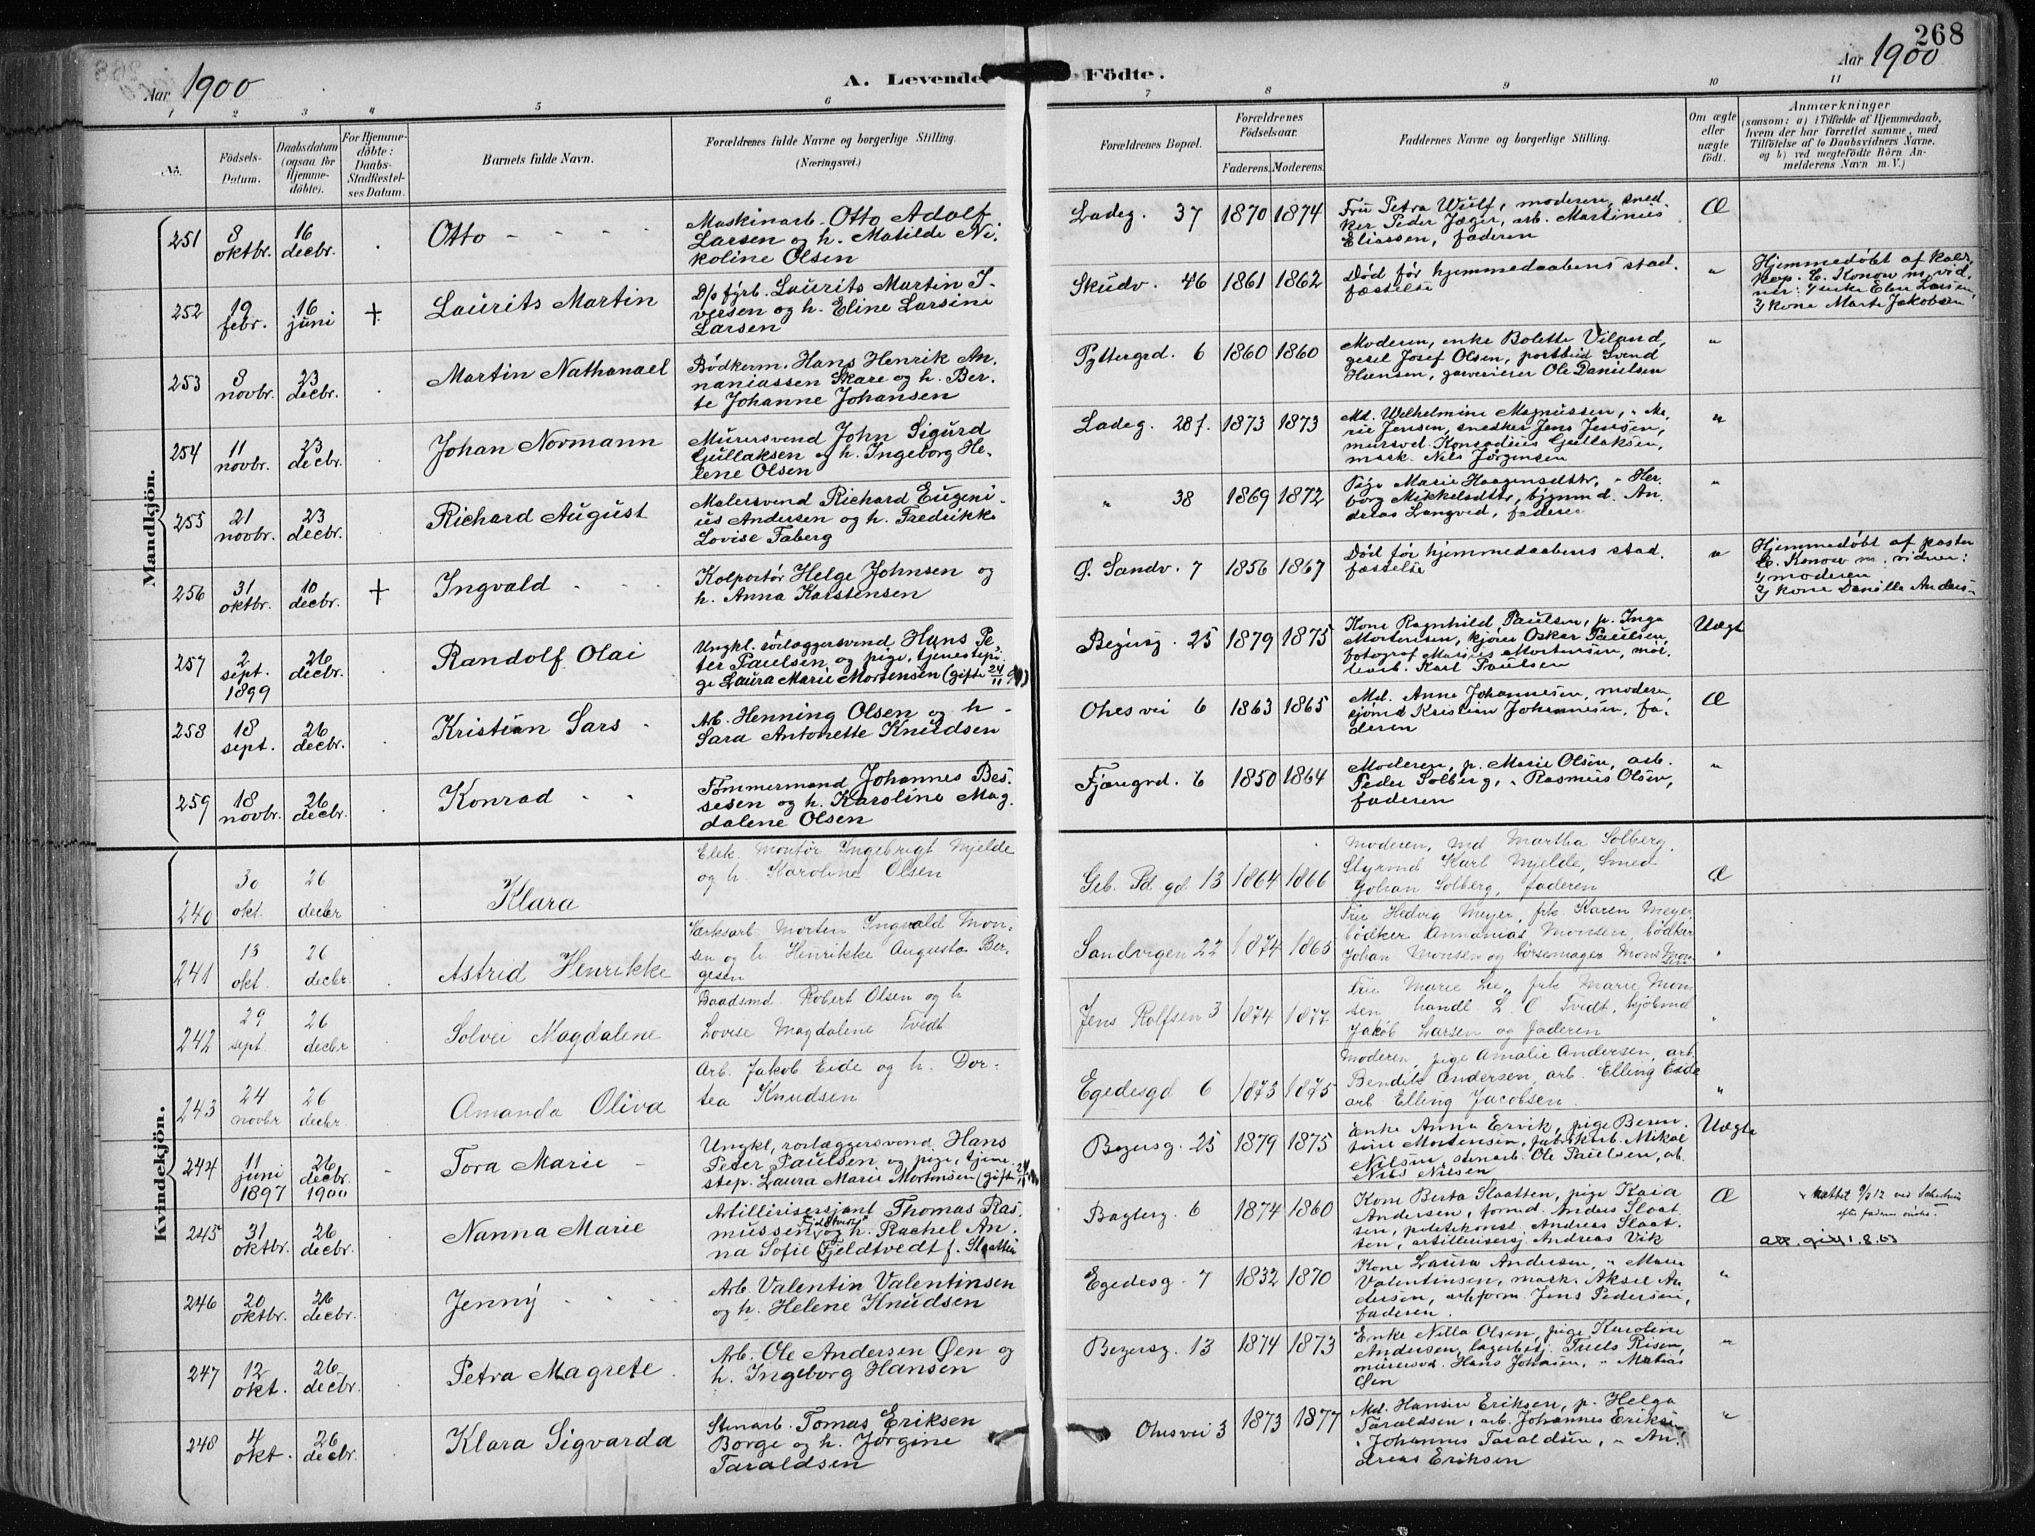 268
Aar 1900
A. Levende Födte.
Aar 1900
1 2 3 4 5 6 7 8 9 10 11
No.
Födsels-Datum.
Daabsdatum (ogsaa for Hjemme-döbte).
For Hjemme-döbte: Daabs-Stadfæstel-ses Datum.
Barnets fulde Navn.
Forældrenes fulde Navne og borgerlige Stilling. (Næringsvei.)
Forældrenes Bopæl.
Forældrenes Födselsaar.
Faderens. Moderens.
Faddernes Navne og borgerlige Stilling.
Om ægte eller uægte födt.
Anmærkninger
(saasom: a) i Tilfælde af Hjemmedaab, hvem der har forrettet samme, med Tilföielse af to Daabsvidners Navne, og b) ved uægtefödte Börn Anmelderens Navn m. V.)
Mandkjön.
251 8 oktbr. 16 decbr. Otto
Maskinarb. Otto Adolf
Larsen og h. Matilde Ni-
koline Olsen
Ladeg. 37 1870 1874
Fru Petra Wulf, moderen, sned-
ker Peder Jæger, arb. Martinius
Eliassen, faderen
Æ
252 19 febr. 16 juni + Laurits Martin
D/s fyrb. Laurits Martin I-
versen og h. Eline Larsine
Larsen
Skudv. 46 1861 1862
Død før hjemmedaabens stad-
fæstelse
"
Hjemmedøbt af
Kap. C. Konow m. vid-
ner: 1/ enke Elen Larsen,
2/ kone Marte Jakobsen
253 8 novbr. 23 decbr. Martin Nathanael
Bødkerm. Hans Henrik An-
naniassen Skare og h. Ber-
te Johanne Johansen
Pyttergrd. 6 1860 1860
Moderen, enke Bolette Viland,
gesel Josef Olsen, postbud Svend
Hansen, garverier Ole Danielsen
"
254 11 novbr. 23 decbr. Johan Normann
Murersvend John Sigurd
Gullaksen og h. Ingeborg He-
lene Olsen
Ladeg. 28 f. 1873 1873
Md. Wilhelmine Magnussen, " Ma-
rie Jensen, snedker Jens Jensen,
mursvd. Konradius Gullaksen,
mask. Nils Jørgensen
"
255 21 novbr. 23 decbr. Richard August
Malersvend Richard Eugeni-
us Andersen og h. Fredrikke
Lovise Faberg
" 38 1869 1872
Pige Marie Haagensdtter, " Her-
borg Mikkelsdttr, bygnmd. An-
dreas Langved, faderen
"
256 31 oktbr. 10 decbr. + Ingvald
Kolportør Helge Johnsen og
h. Anna Karstensen
Ø. Sandv. 7 1856 1867
Død før hjemmedaabens stad-
fæstelse
"
Hjemmedøbt af pastor
C. Konow m. vidner:
1/ moderen
2/ kone Danille Anders-
257 2 sept. 1899 26 decbr. Randolf Olai
Ungkl. rørlæggersvend Hans Pe-
ter Paulsen og pige, tjenestepi-
ge Laura Marie Mortensen (gifte 24/11
Bøgersg. 25 1879 1875
Kone Ragnhild Paulsen, p. Inga
Mortensen, kjører Oskar Paulsen,
fotograf Marius Mortensen, møl-
learb. Karl Paulsen
Uægt
258 18 sept. 26 decbr. Kristian Sars
Arb. Henning Olsen og h.
Sara Antonette Knudsen
Ohesvei 6 1863 1865
Md. Anne Johannesen, moderen,
sjømd Kristian Johannesen, fa-
deren
Æ
259 18 novbr. 26 decbr. Konrad
Tømmermand Johannes Bes-
sesen og h. Karoline Mag-
dalene Olsen
Fjæregrd. 6 1850 1864
Moderen, p. Marie Olsen, arb.
Peder Solberg, " Rasmus Olsen,
faderen
"
Kvindekjön.
240 30 okt. 26 decbr Klara
Elek. Montør Ingebrigt Mjelde
og h. Karoline Olsen
Geb. Pd. gd 13 1864 1866
Moderen, Md Martha Solberg,
Styrmd Karl Mjelde, Smed
Johan Solberg, faderen
Æ
241 13 okt. 26 decbr Astrid Henrikke
Værksarb. Morten Ingvald Mon-
sen og h. Henrikke Augusta Ber-
gesen
Sandvigen 22 1874 1865
Fru Hedvig Meyer, frk Karen Meyer,
bødker Annanias Monsen, bødker
Johan Monsen og børsemager Mons Mon-
sen
242 29 sept 26 decbr Solvei Magdalene
Baadsmd. Robert Olsen og h
Lovise Magdalene Tvedt
Jens Rolfsen 3 1874 1877
Fru Marie Lie, frk Marie Mon-
sen, handl L. O Tvedt, kjøbmd
Jakob Larsen og faderen
243 24 novbr 26 decbr Amanda Oliva
Arb. Jakob Eide og h. Dor-
tea Knudsen
Egedesgd 6 1873 1875
Moderen, pige Amalie Andersen, arb.
Bendik Andersen, arb. Elling Eide
arb Elling Jacobsen
"
244 11 juni 1897 26 decbr. 1900 Tora Marie
Ungkl, rørlæggersvend Hans
Peter Paulsen og pige, tjene-
step. Laura Marie Mortensen (gifte
Bøgersg. 25 1879 1875
Enke Anna Ervik, pige Bern-
tine Mortensen, fabrikarb. Mikal
Nilsen, stenarb. Ole Paulsen, ab.
Nils Nilsen
Uægte
245 31 oktbr. 26 decbr. Nanna Marie
Artillerisersjant Thomas Ras-
mussen Fjeldtvedt og h. Rachel An-
na Sofie Fjeldtvedt f. Slaatten
Bagterg. 6 1874 1860
Kone Berta Slaatten, pige Kaia
Andersen, formd. Anders Slaat-
ten, politikonst. Andreas Slaat-
ten, artillerisersj. Andreas Vik
Æ
246 20 oktbr. 26 decbr. Jenny
Arb. Valentin Valentinsen
og h. Helene Knudsen
Egedesg. 7 1832 1870
Kone Laura Andersen, " Marie
Valentinsen, mask. Aksel An-
dersen, arbform. Jens Pedersen,
faderen
"
247 12 okt. 26 decbr. Petra Magrete
Arb. Ole Andersen Øen og
h. Ingeborg Hansen
Bøgersg. 13 1874 1873
Enke Nilla Olsen, pige Karoline
Andersen, lagerbetj. Truels Risøen,
murersvd. Hans Johnsen, " Matias
Øen
"
248 4 okt. 26 decbr. Klara Sigvarda
Stenarb. Tomas Eriksen
Borge og h. Jørgine
Taraldsen
Ohesvei 3 1873 1877
Md. Hansine Eriksen, p. Helga
Taraldsen, arb. Johannes Eriksen
" Johannes Taraldsen, " An-
dreas Eriksen
"